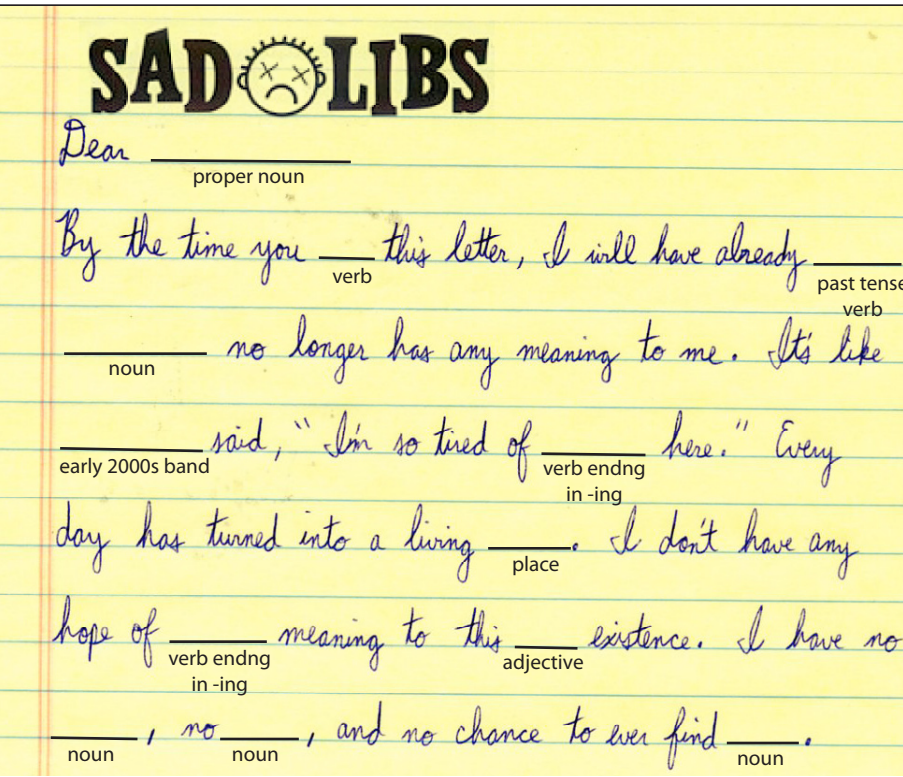 SAD LIBS
Dear
proper noun
By the time you this letter, I will have already
verb
past tense
verb
no longer has any meaning to me. It's like
noun
said, "I'm so tired of here." Every
early 2000s band
verb endng
in -ing
day has turned into a living . I don't have any
place
hope of meaning to this existence. I have no
verb endng
in -ing
adjective
, no , and no chance to ever find .
noun noun noun